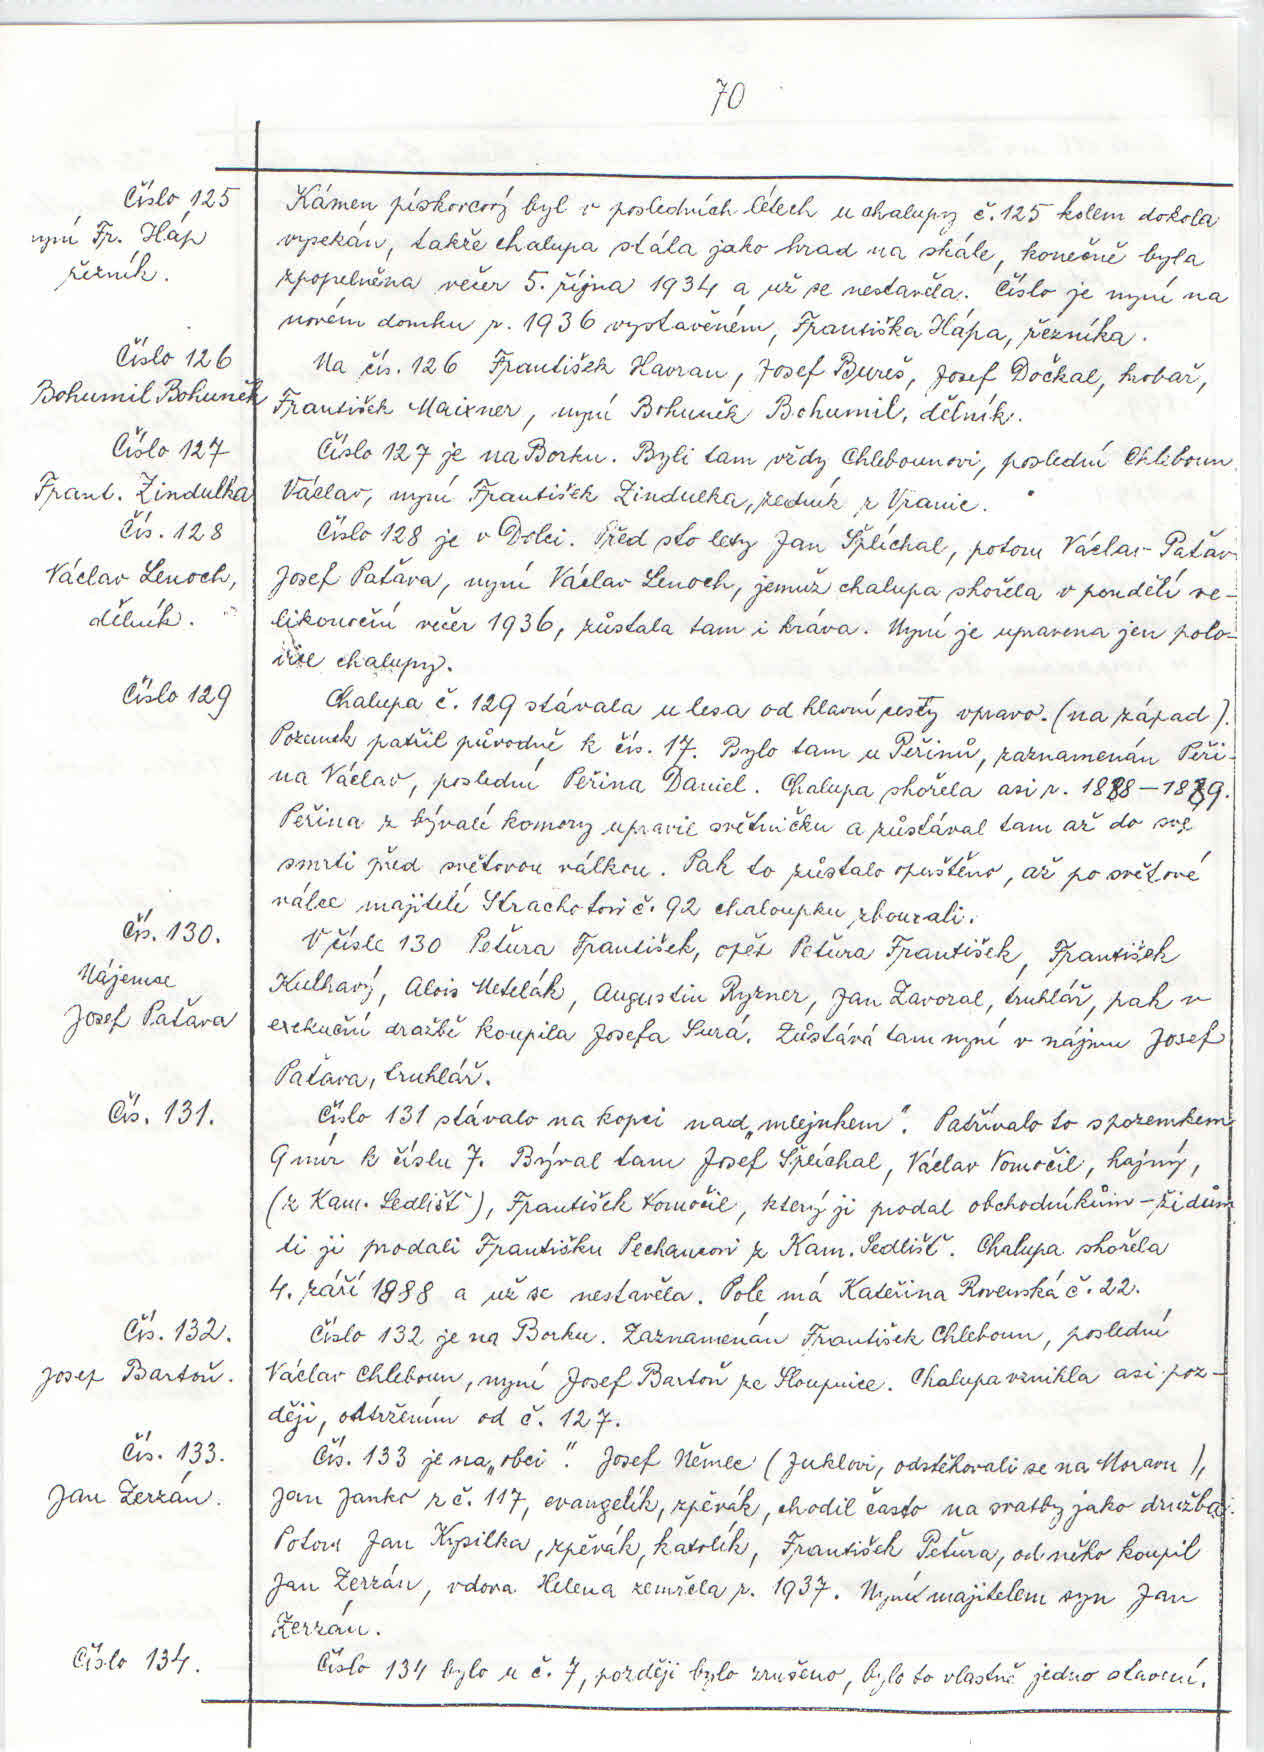 70
Číslo 125
nyní Fr. Háp
řezník.
Kámen pískovcový byl v posledních létech u chalupy č. 125 kolem dokola
vysekán, takže chalupa stála jako hrad na skále, konečně byla
zpopelněna večer 5. října 1934 a už se nestavěla. Číslo je nyní na
novém domku r. 1936 vystavěném, Františka Hápa, řezníka.
Číslo 126
Bohumil Bohuněk
Na čís. 126 František Havran, Josef Bureš, Josef Dočkal, hrobař,
František Maixner, nyní Bohuněk Bohumil, dělník.
Číslo 127
Frant. Zindulka
Číslo 127 je na Borku. Byli tam vždy Chlebounovi, poslední Chleboun
Václav, nyní František Zindulka, zedník z Vranic.
Čís. 128
Václav Lenoch,
dělník.
Číslo 128 je v Dolci. Před sto lety Jan Šplíchal, potom Václav Paťav
Josef Paťava, nyní Václav Lenoch, jemuž chalupa shořela v pondělí ve-
likonoční večer 1936, zůstala tam i kráva. Nyní je upravena jen polo-
vice chalupy.
Číslo 129
Chalupa č. 129 stávala u lesa od hlavní cesty vpravo. (na západ).
Pozemek patřil původně k čís. 17. Bylo tam u Peřinů, zaznamenán Peři-
na Václav, poslední Peřina Daniel. Chalupa shořela asi r. 1888-1889.
Peřina z bývalé komory upravil světničku a zůstával tam až do své
smrti před světovou válkou. Pak to zůstalo opuštěno, až po světové
válce majitelé Strachotovi č. 92 chaloupku zbourali.
Čís. 130.
Nájemce
Josef Paťava
V čísle 130 Peťura František, opět Peťura František, František
Kulhavý, Alois Metelák, Augustin Ryzner, Jan Zavoral, truhlář, pak v
exekuční dražbě koupila Josefa Surá. Zůstává tam nyní v nájmu Josef
Paťava, truhlář.
Čís. 131.
Číslo 131 stávalo na kopci nad „mlejnkem". Patřívalo to s pozemkem
9 mír k číslu 7. Býval tam Josef Šplíchal, Václav Vomočil, hajný,
(z Kam. Sedlišť), František Vomočil, který ji prodal obchodníkům - židům
ti ji prodali Františku Pechancovi z Kam. Sedlišť. Chalupa shořela
4. září 1888 a už se nestavěla. Pole má Kateřina Rovenská č. 22.
Čís. 132.
Josef Bartoň.
Číslo 132 je na Borku. Zaznamenán František Chleboun, poslední
Václav Chleboun, nyní Josef Bartoň ze Sloupnice. Chalupa vznikla asi poz-
ději, odtržením od č. 127.
Čís. 133.
Jan Zerzán.
Čís. 133 je na „obci". Josef Němec (Juklovi, odstěhovali se na Moravu),
Jan Janko z č. 117, evangelík, zpěvák, chodil často na svatby jako družba.
Potom Jan Kysilka, zpěvák, katolík, František Peťura, od něho koupil
Jan Zerzán, vdova Helena zemřela r. 1937. Nyní majitelem syn Jan
Zerzán.
Číslo 134.
Číslo 134 bylo u č. 7, později bylo zrušeno, bylo to vlastně jedno stavení.